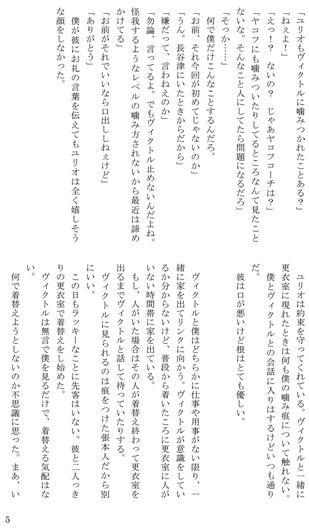 「ユリオもヴィクトルに噛みつかれたことある?」
「ねぇよ!」
「えっ!? ないの? じゃあヤコフコーチは?」
「ヤコフにも噛みついたりしてるところなんて見たこと
ないな。そんなこと人にしてたら問題になるだろ」
「そっか……」
何で僕だけこんなことするんだろ。
「お前、それ今回が初めてじゃないのか」
「うん。長谷津にいたときからだから」
「嫌だって、言わねえのか」
「勿論、言ってるよ。でもヴィクトル止めないんだよね。
怪我するようなレベルの噛み方されないから最近は諦め
かけてる」
「お前がそれでいいなら口出ししねぇけど」
「ありがとう」
僕が彼にお礼の言葉を伝えてもユリオは全く嬉しそう
な顔をしなかった。
ユリオは約束を守ってくれている。ヴィクトルと一緒に
更衣室に現れたときは何も僕の噛み痕について触れない。
僕とヴィクトルとの会話に入りはするけどいつも通り
だ。
彼は口が悪いけど根はとても優しい。
ヴィクトルと僕はどちらかに仕事や用事がない限り、一
緒に家を出てリンクに向かう。ヴィクトルが意識をしてい
るか分からないけど、普段から着いたころに更衣室に人が
いない時間帯に家を出ている。
もし、人がいた場合はその人が着替え終わって更衣室を
出るまでヴィクトルと話して待っていたりする。
ヴィクトルに見られるのは痕をつけた張本人だから別
にいい。
この日もラッキーなことに先客はいない。彼と二人っき
りの更衣室で着替えをし始めた。
ヴィクトルは無言で僕を見るだけで、着替える気配はな
い。
何で着替えようとしないのか不思議に思った。まあ、い
5